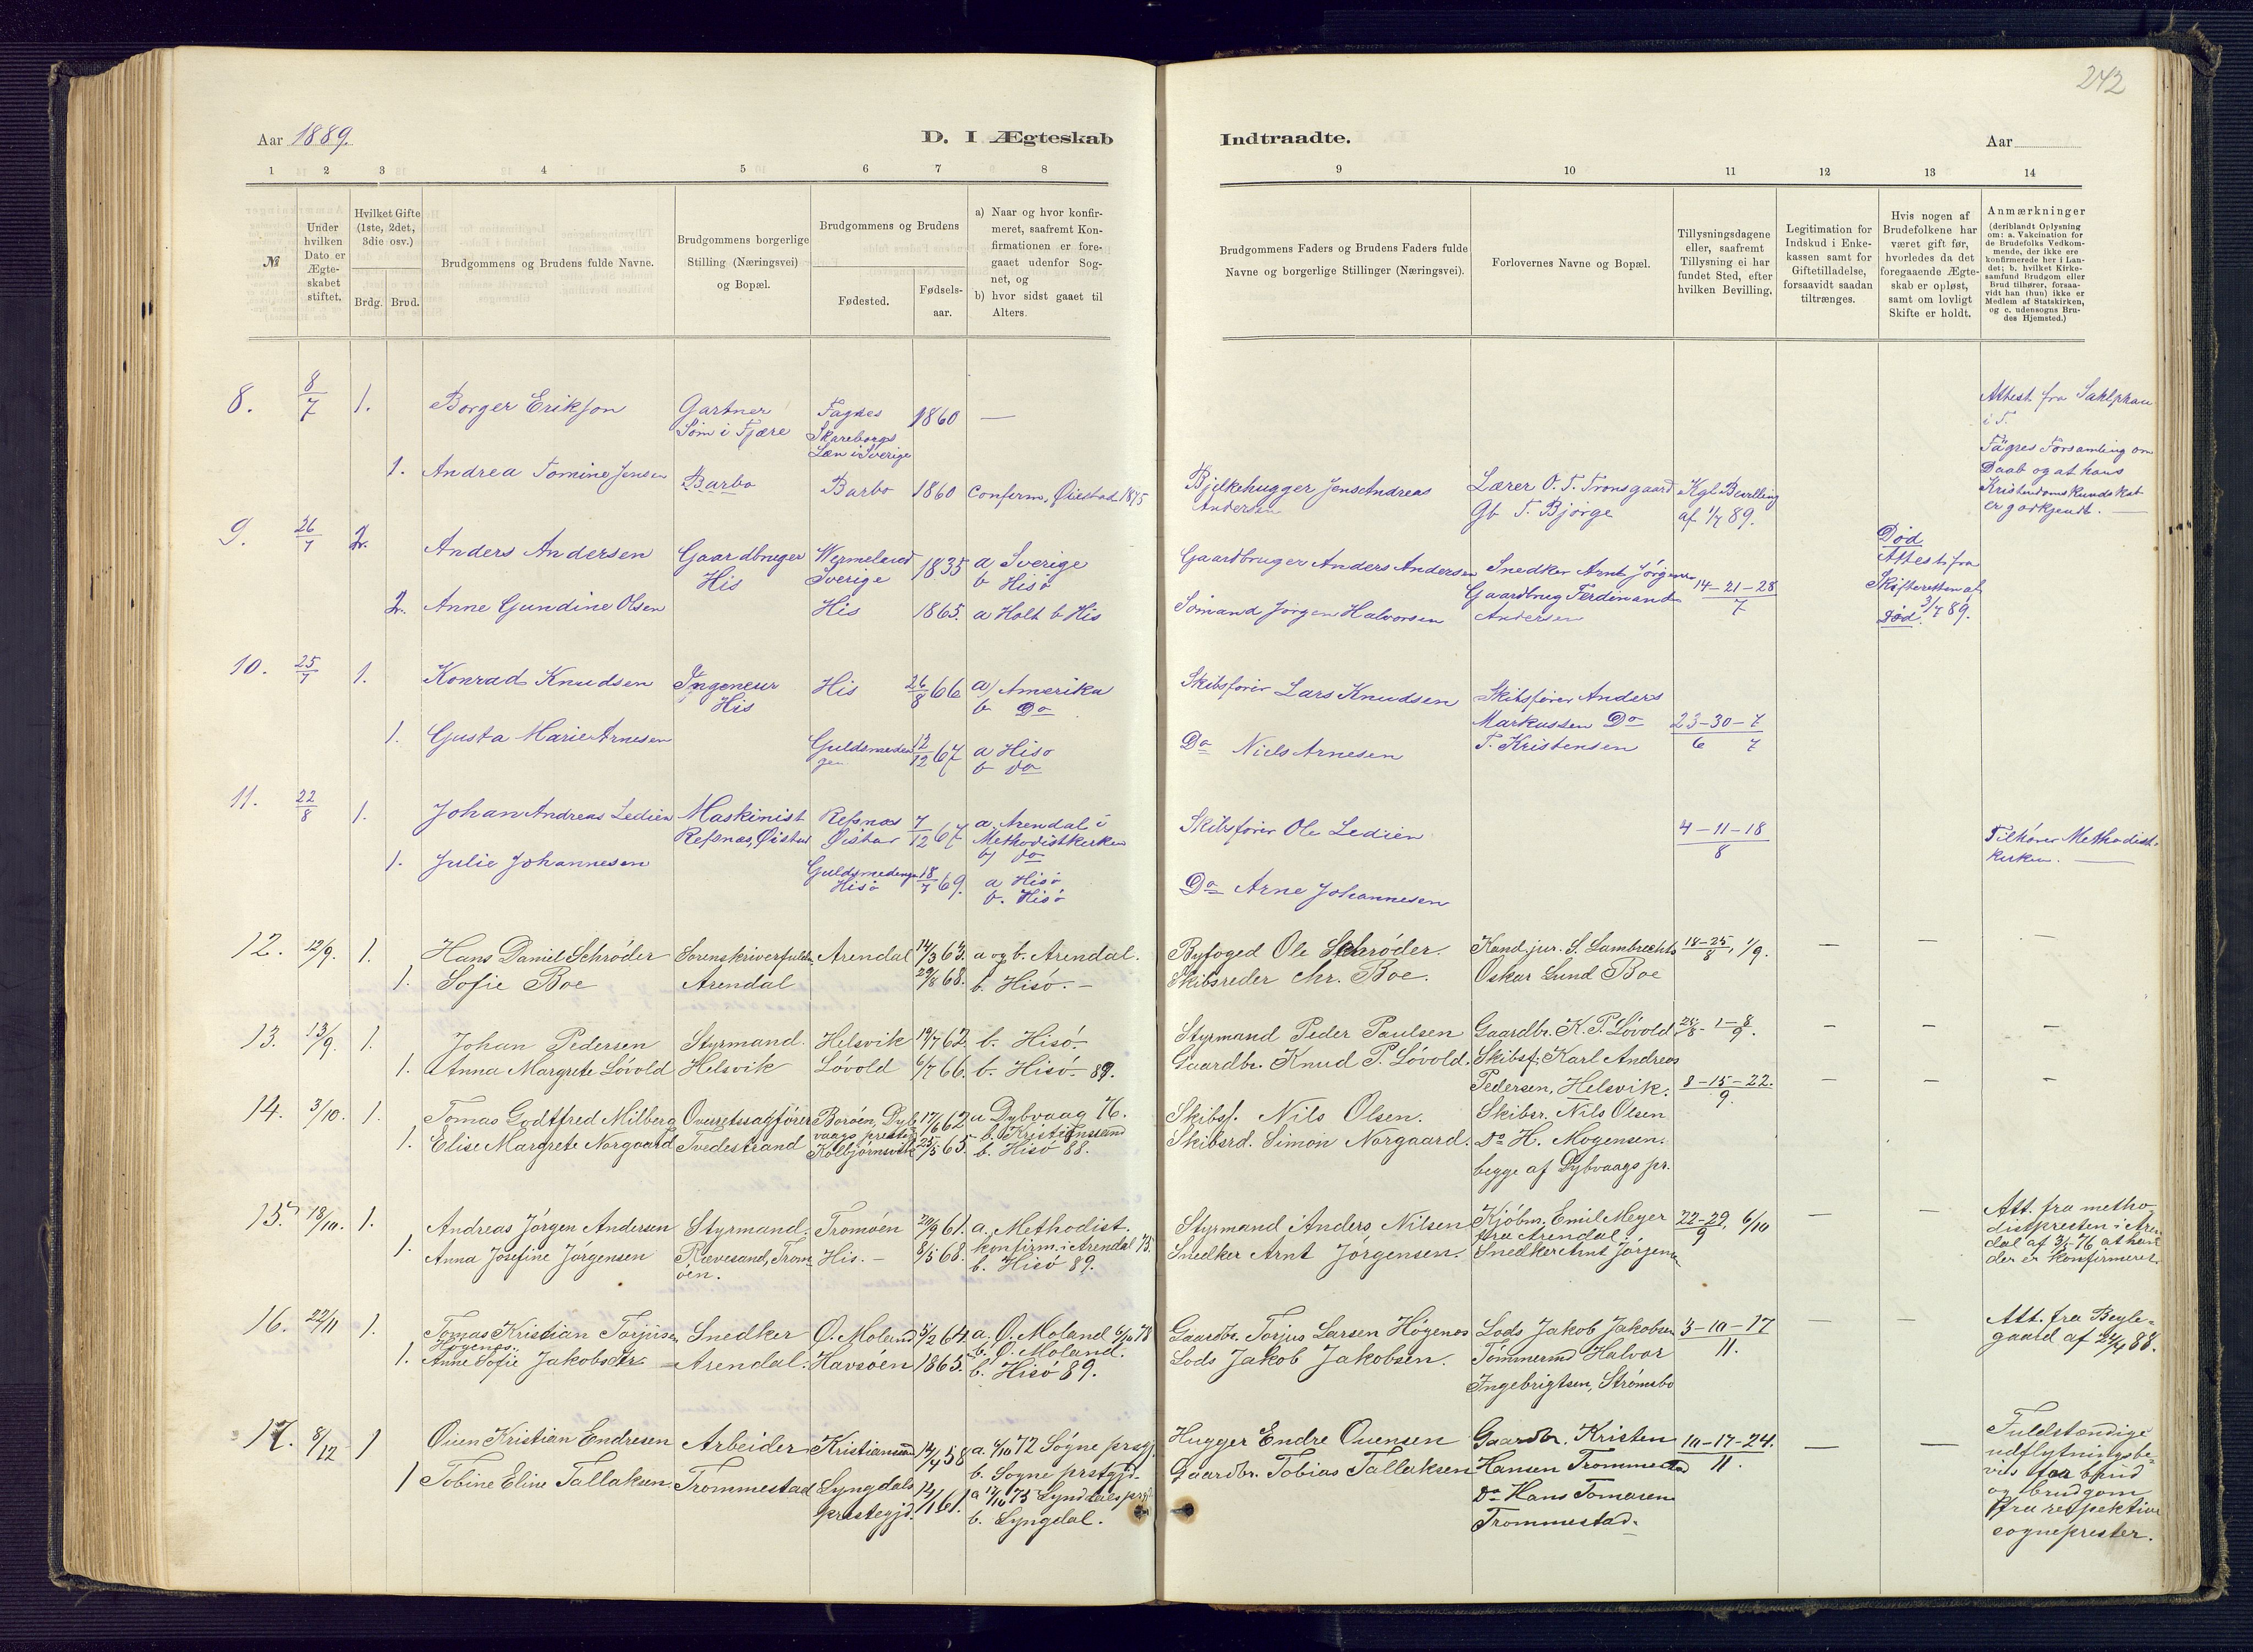 242
Aar 1889.
D. I Ægteskab
Indtraadte.
Aar
1 2 3 4 5 6 7 8
9 10 11 12 13 14
№
Under
hvilken
Dato er
Ægte-
skabet
stiftet.
Hvilket Gifte
(1ste, 2det,
3die osv.)
Brdg. Brud.
Brudgommens og Brudens fulde Navne.
Brudgommens borgerlige
Stilling (Næringsvei)
og Bopæl.
Brudgommens og Brudens
Fødested.
Fødsels-
aar.
a) Naar og hvor konfir-
meret, saafremt Kon-
firmationen er fore-
gaaet udenfor Sog-
net, og
b) hvor sidst gaaet til
Alters.
Brudgommens Faders og Brudens Faders fulde
Navne og borgerlige Stillinger (Næringsvei).
Forlovernes Navne og Bopæl.
Tillysningsdagene
eller, saafremt
Tillysning ei har
fundet Sted, efter
hvilken Bevilling.
Legitimation for
Indskud i Enke-
kassen samt for
Giftetilladelse,
forsaavidt saadan
tiltrænges.
Hvis nogen af
Brudefolkene har
været gift før,
hvorledes da det
foregaaende Ægte-
skab er opløst,
samt om lovligt
Skifte er holdt.
Anmærkninger
(deriblandt Oplysning
om: a. Vakcination for
de Brudefolks Vedkom-
mende, der ikke ere
konfirmerede her i Lan-
det; b. hvilket Kirke-
samfund Brudgom eller
Brud tilhører, forsaa-
vidt han (hun) ikke er
Medlem af Statskirken,
og c. udensogns Bru-
des Hjemsted.)
8. 8/7 1. Borger Erikson Gartner
Søm i Fjære
Fagres
Skareborgs
Læn i Sverige
1860 —
Attest fra
i T.
Fägres Forsamling om
Daab og at hans
Kristendomskundskab
er godkjendt. —
1. Andrea Tomine Jensen Barbo Barbo 1860 Confirm. Øiestad 1875
Bjelkehugger Jens Andreas
Andersen
Lærer O. T. Tronsgaard
Gb T. Bjorge
Kgl Bevilling
af 1/7 89.
9. 26/7 2. Anders Andersen Gaardbruger
His
Wermeland
Sverige
1835 a Sverige
b Hisö
Gaardbruger Anders Andersen
Snedker Arnt Jörgensen
Gaardbrug Ferdinand
Andersen
14-21-28
7
Död
Attest fra
Skifteretten af
3/7 89.
Död.
2. Anne Gundine Olsen His 1865. a Holt b His
Sömand Jörgen Halvorsen
10. 25/7 1. Konrad Knudsen Ingeneur
His
His 26/8 66 a) Amerika
b Do
Skibsförer Lars Knudsen
Skibsförer Anders
Markussen Do
T. Kristensen
23-30-7
6 7
1. Gusta Marie Arnesen Guldsmeden
gen
13/12 67 a Hisö
b do
Do Niels Arnesen
11. 22/8 1. Johan Andreas Ledien Maskinist
Refsnæs, Öistad
Refsnæs
Öistad
7/12 67 a, Arendal i
Methodistkirken
b) do
Skibsförer Ole Ledien
4-11-18
8
Tilhörer Methodist-
kirken. —
1. Julie Johannesen Guldsmedengen
Hisö
18/7 69. a Hisö
b. Hisö
Do Arne Johannesen
12. 12/9. 1. Hans Daniel Schröder Sorenskriverfuldm. Arendal 14/3 63. a og b. Arendal.
Byfoged Ole Schröder. Kand. jur. S. Lambrechts 18-25/8, 1/9. — — —
1. Sofie Boe Arendal 29/8 68. b. Hisö. -
Skibsreder Chr. Boe. Oskar Lund Boe
13. 13/9. 1. Johan Pedersen Styrmand. Helsvik 19/7 62. b. Hisö.
Styrmand Peder Paulsen Gaardbr. K. P. Lövold 25/8 - 1-8/9. — — —
1. Anna Margrete Lövold Helsvik Lövold 6/7 66. b. Hisö 89.
Gaardbr. Knud P. Lövold. Skibsf. Karl Andreas
Pedersen, Helsvik.
14. 3/10. 1. Tomas Godtfred Milberg Overretssagförer Borøen, Dyb
vaags prestegj
17/6 62 a Dybvaag 76.
b. Kristianssand
Skibsf. Nils Olsen. Skibsr. Nils Olsen 8-15-22.
9. — — —
1. Elise Margrete Norgaard Tvedestrand Kolbjörnsvik 25/5 65. b. Hisö 88.
Skibsrd. Simon Norgaard. Do H. Mogensen.
begge af Dybvaags pr.
15. 18/10. 1. Andreas Jörgen Andersen Styrmand. Tromöen 20/9 61. a. Methodist.
konfirm. i Arendal 75.
Styrmand Anders Nilsen Kjöbm. Emil Meyer
fra Arendal.
22-29/9, 6/10 — —
Att. fra metho
distpresten i Aren
dal af 3/5 76 at han
der er konfirmeret.
1. Anna Josefine Jörgensen Revesand, Trom-
öen.
His. - 8/5 68. b. Hisö 89.
Snedker Arnt Jörgensen. Snedker Arnt Jörgensen
16. 22/11 1. Tomas Kristian Torjusen
Högenes.
Snedker Ö. Moland 5/2 64. a. Ö. Moland 6/10 78
b. Ö. Moland.
Gaardbr. Torjus Larsen Högenes Lods Jakob Jakobsen 3-10-17
11. — —
Att. fra Bygle-
gaard af 24/4 88.
1. Anne Sofie Jakobsdtr. Arendal. Havsöen 1865. b. Hisö 89.
Lods Jakob Jakobsen. Tömmermd Halvor
Ingebrigtsen, Strömsbo
17. 8/12 1 Ouen Kristian Endresen Arbeider Kristianssand 14/4 58 a. 6/10 72 Sögne prstgj.
b. Sogne prstgjd.
Hugger Endre Ouensen Gaardbr. Kristen
Hansen Trommestad
10-17-24.
11. — —
Fuldstændige
udflytningsbe-
vis for brud
og brudgom
fra respektive
sogneprester.
1 Tobine Eline Tallaksen. Trommestad Lyngdals
prestegjd.
14/1 61. a 17/10 75 Lyngdals prgj.
b. Lyngdal.
Gaardbr. Tobias Tallaksen Do Hans Tomasen
Trommestad.